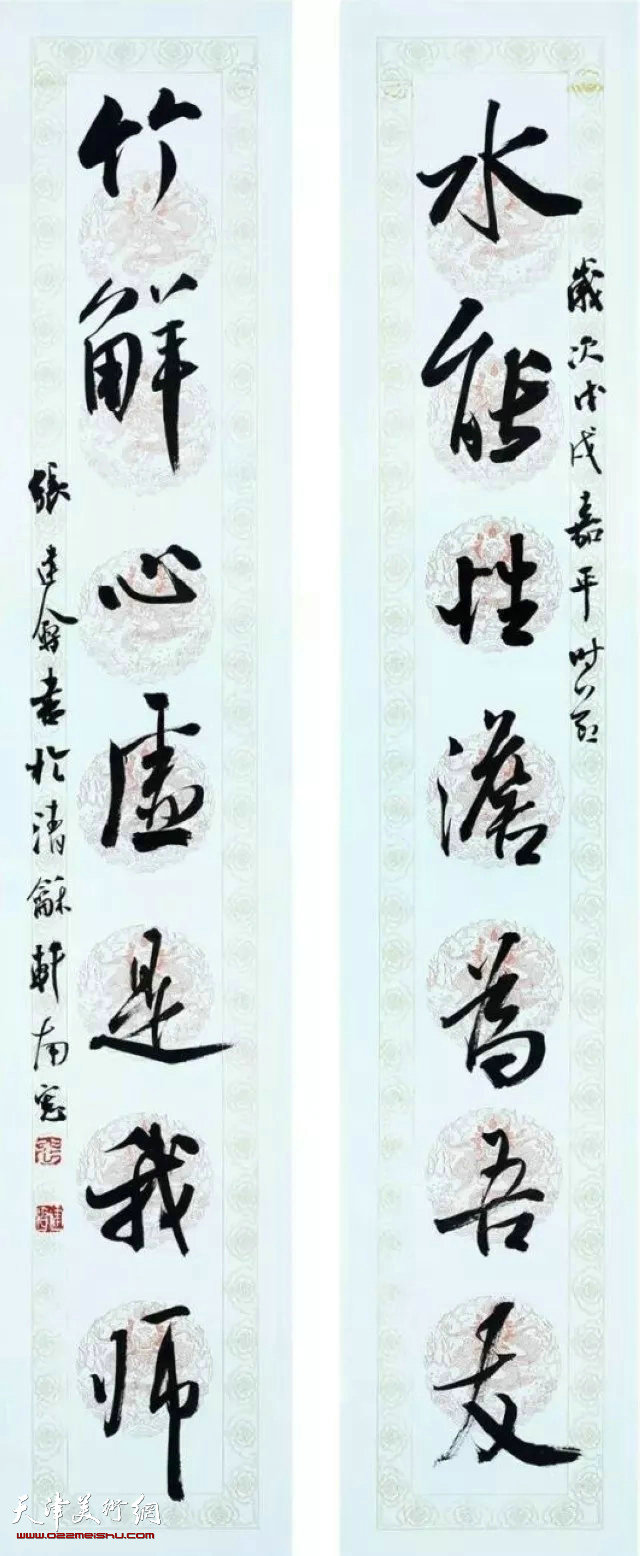 水能性澹為吾友
歲次戊戌嘉平时
竹解心虛是我师
張建會書於清龢軒南窗
天津美術網
www.022meishu.com